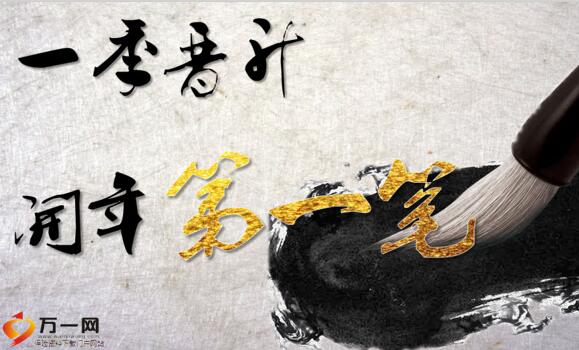 一季晋升
開年第一笔
万一网
www.wanyiwang.com
保险资料下载门户网站